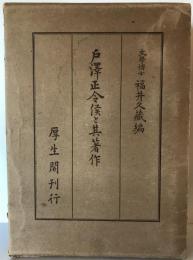 文學博士 福井久藏編
戶澤正令侯と其著作
厚生閣刊行